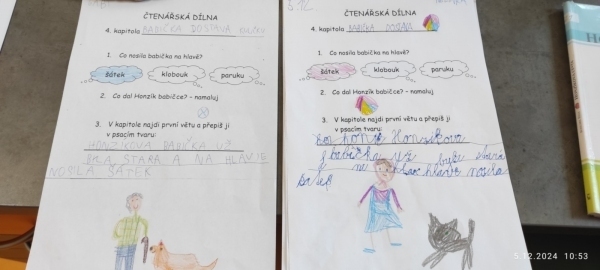 ČTENÁŘSKÁ DÍLNA
4. kapitola BABIČKA DOSTAVA
1. Co nosila babička na hlavě?
šátek klobouk paruku
2. Co dal Honzík babičce? - namaluj
3. V kapitole najdi první větu a přepiš ji
v psacím tvaru:
HONZÍKOVA BABIČKA UŽ
BYLA STARÁ A NA HLAVJE
NOSILA ŠÁTEK
5.12.
ČTENÁŘSKÁ DÍLNA
4. kapitola BABIČKA DOSTAVA
1. Co nosila babička na hlavě?
šátek klobouk paruku
2. Co dal Honzík babičce? - namaluj
3. V kapitole najdi první větu a přepiš ji
v psacím tvaru:
Honzíkova
babička už stará
hlavě nosila
5.12.2024 10:53